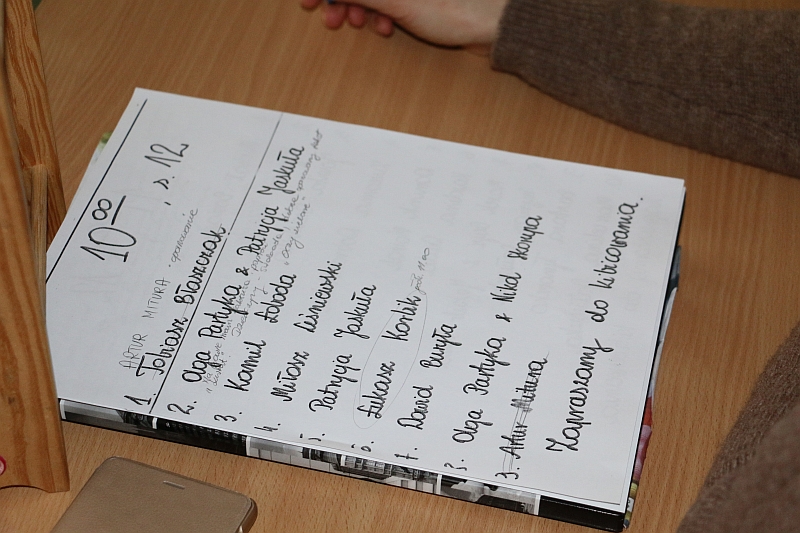 10⁰⁰, s. 12
ARTUR MITURA - opowiadanie
1. Tobiasz Błaszczak
2. Olga Partyka & Patrycja Jaskuła
3. Kamil Łoboda
4. Miłosz Leśniewski
5. Patrycja Jaskuła
6. Łukasz Korlik
7. Dawid Buryła
Olga Partyka & Nikol Skorupa
9. Artur Mitura
Zapraszamy do kibicowania.